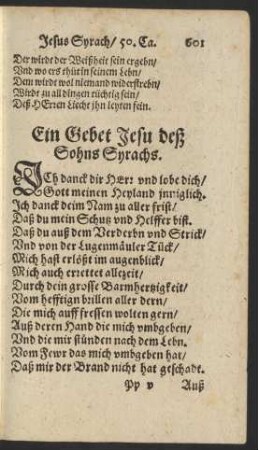 Jesus Syrach/ 50. Ca. 601
Der wirde der Weißheit sein ergebn/
Vnd wo ers thüt in seinem Lebn/
Dem wirdt wol niemand widerstrebn/
Wirdt zu all dingen tüchtig sein/
Deß HErren Liecht jhn leyten fein.
Ein Gebet Jesu deß
Sohns Syrachs.
JCh danck dir HErr vnd lobe dich/
Gott meinen Heyland jnniglich.
Ich danck deim Nam zu aller frist/
Daß du mein Schutz vnd Helffer bist.
Daß du auß dem Verderbn vnd Strick/
Vnd von der Lugenmäuler Tück/
Mich hast erlößt im augenblick/
Mich auch errettet allezeit/
Durch dein grosse Barmhertzigkeit/
Vom hefftign brillen aller dern/
Die mich auff fressen wolten gern/
Auß deren Hand die mich vmbgeben/
Vnd die mir stünden nach dem Lebn.
Vom Fewr das mich vmbgeben hat/
Daß mir der Brand nicht hat geschadt.
Pp v Auß